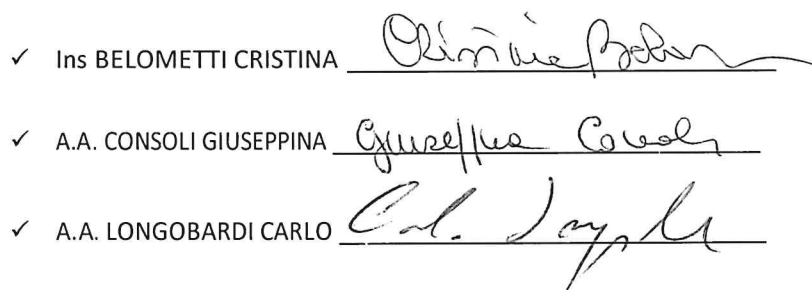 ✓ Ins BELOMETTI CRISTINA Cristina Belom
✓ A.A. CONSOLI GIUSEPPINA Giuseppina Consoli
✓ A.A. LONGOBARDI CARLO